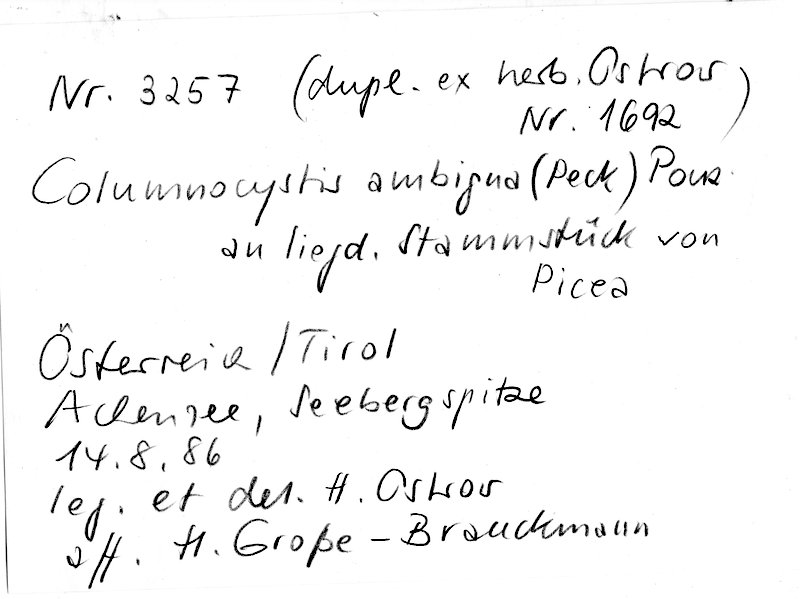 Nr. 3257 (dupl. ex herb. Ostrow
Nr. 1692)
Columnocystis ambigua (Peck) Pouz.
an liegd. Stammstück von
Picea
Österreich / Tirol
Achensee, Seebergspitze
14.8.86
leg. et det. H. Ostrow
aff. H. Große-Brauckmann